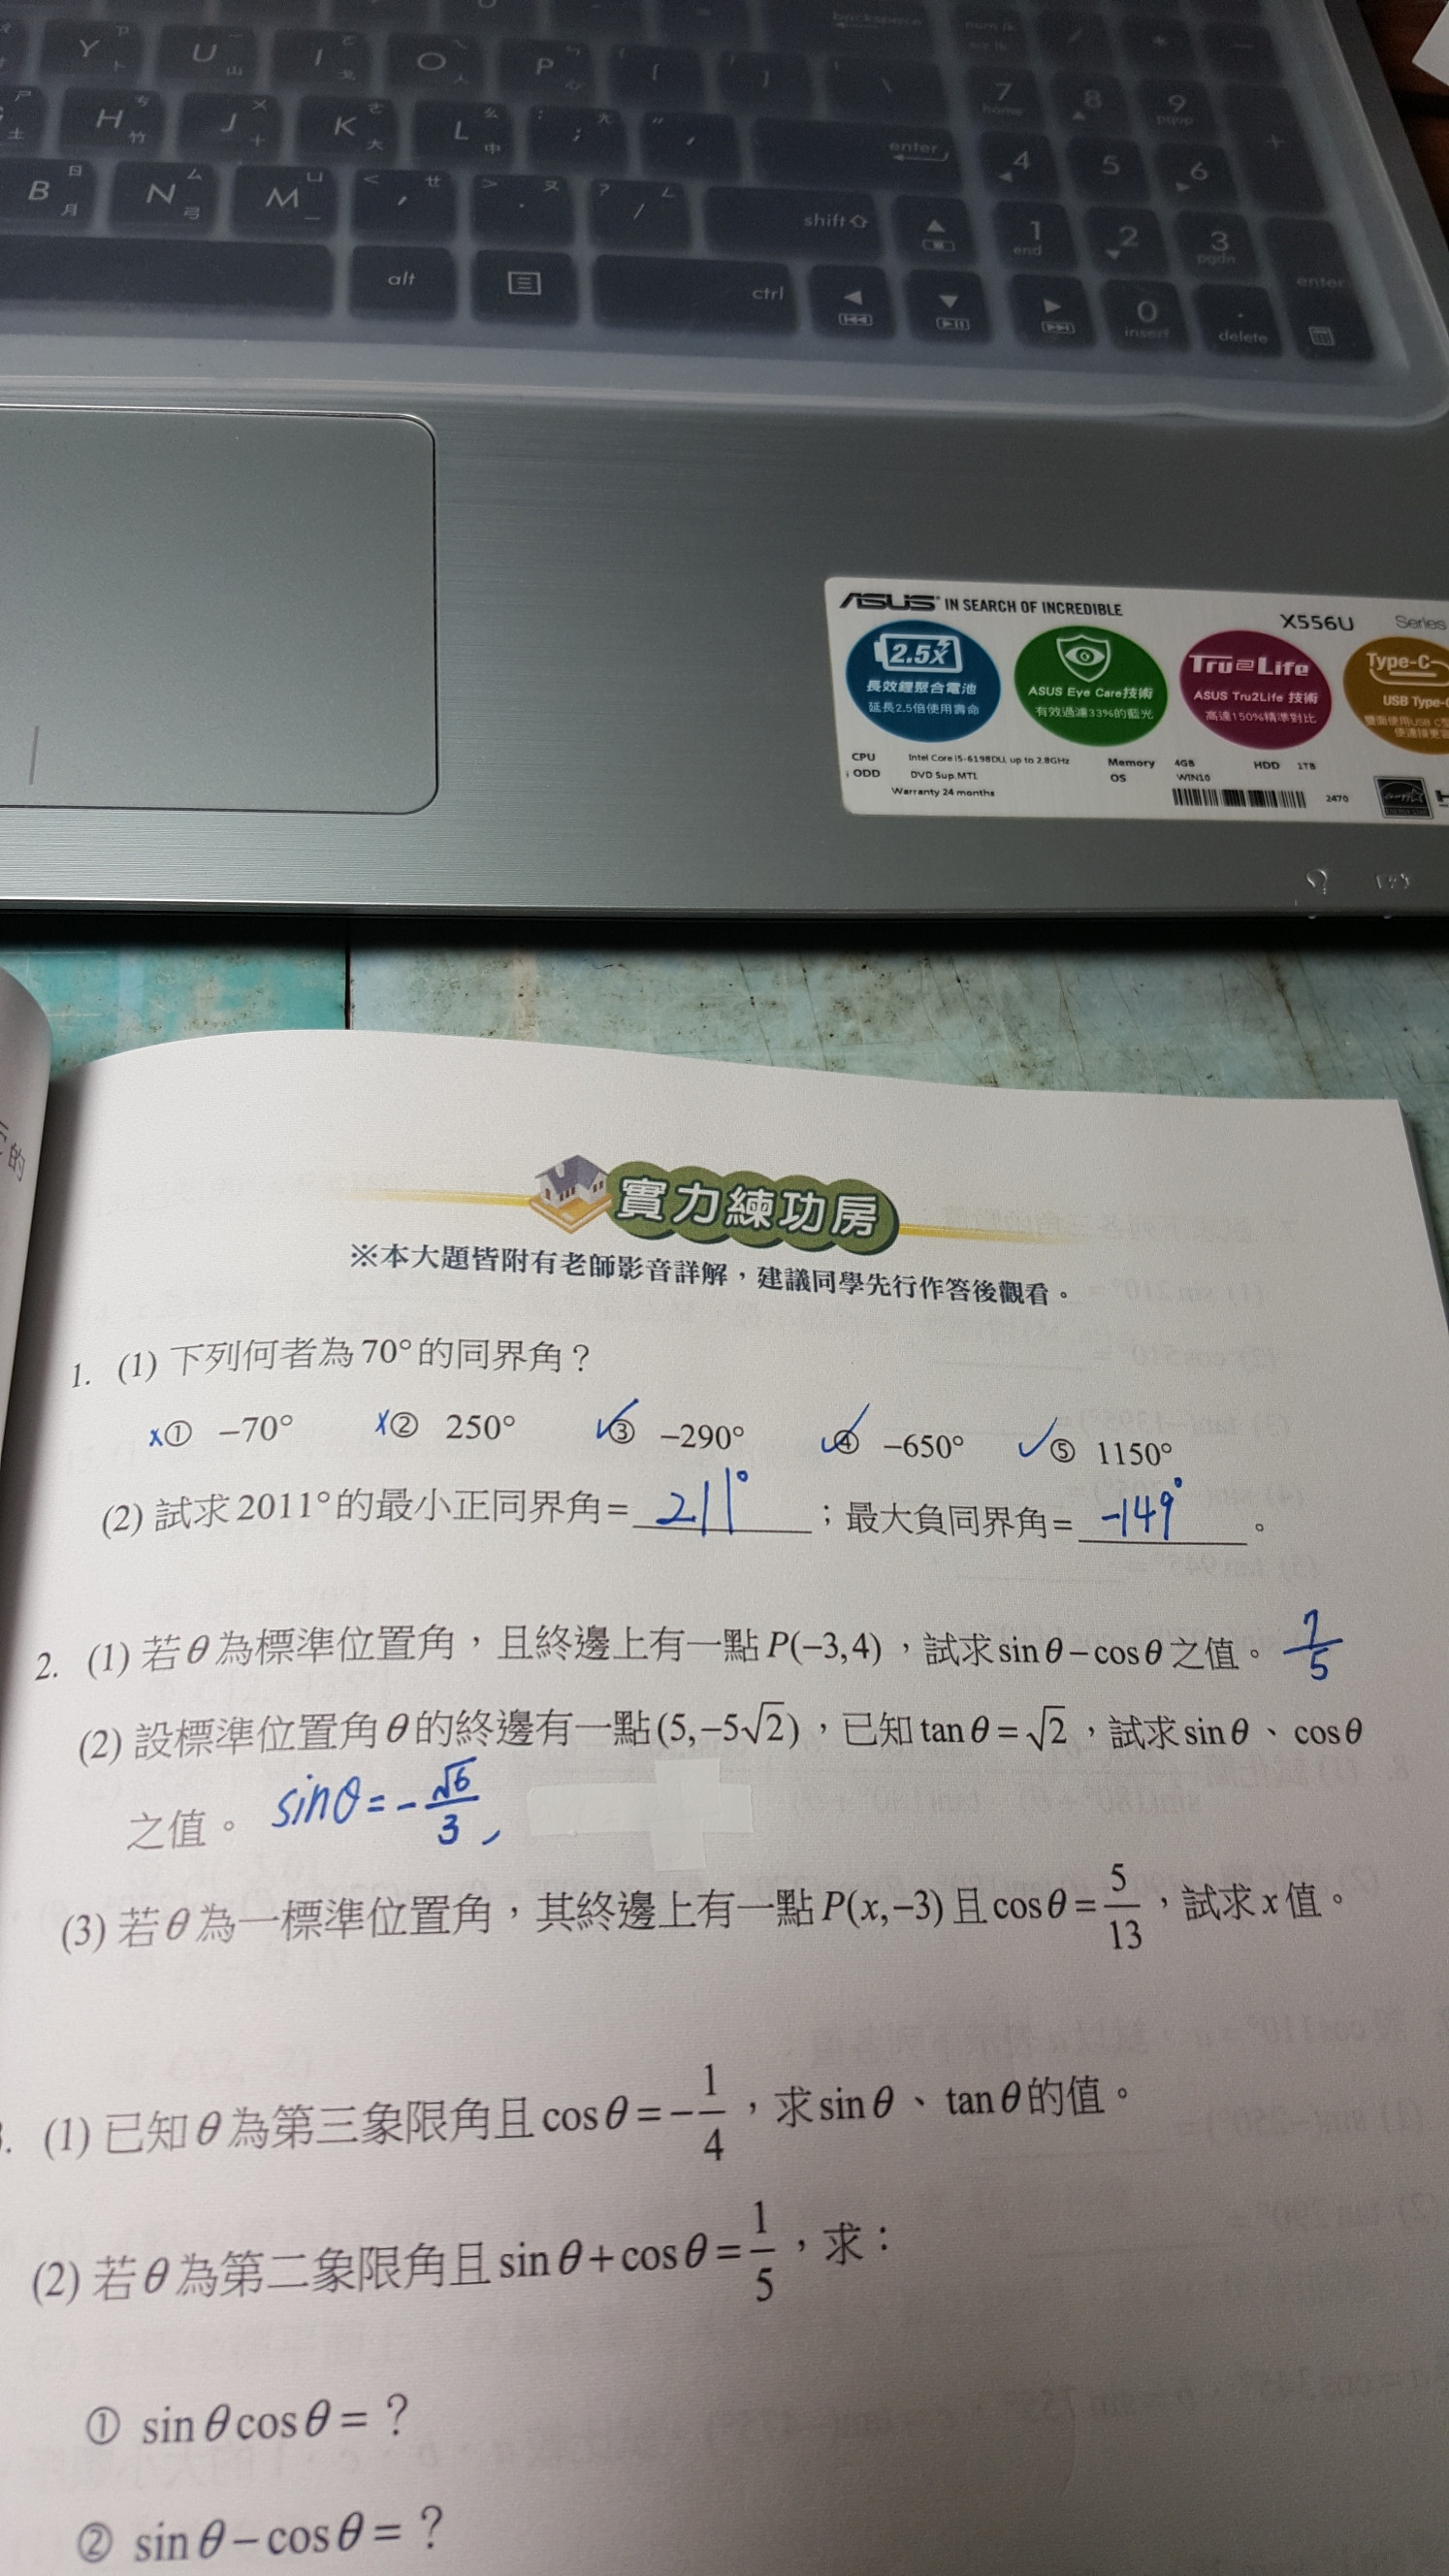 backspace
Y ㄗ 卜 U ㄧ 山 I ㄛ 戈 O ㄟ 人 P ㄣ 心 [ ] \ 7 home 8 9 pgup
H ㄘ 竹 J ㄨ 十 K ㄜ 大 L ㄠ 中 : ; ㄤ " ' enter 4 5 6 +
B ㄖ 月 N ㄙ 弓 M ㄩ 一 < , ㄝ > . ㄡ ? / ㄥ shift 1 end 2 3 pgdn
alt ctrl 0 insert . delete enter
ASUS IN SEARCH OF INCREDIBLE X556U Series
2.5X 長效鋰聚合電池 延長2.5倍使用壽命
ASUS Eye Care技術 有效過濾33%的藍光
Tru2Life ASUS Tru2Life 技術 高達150%精準對比
Type-C USB Type-
CPU Intel Core i5-6198DU, up to 2.8GHz Memory 4GB HDD 1TB
ODD DVD Sup.MTL OS WIN10
Warranty 24 months 2470
的
實力練功房
※本大題皆附有老師影音詳解，建議同學先行作答後觀看。
1. (1) 下列何者為70°的同界角？
x① −70° x② 250° ✓③ −290° ✓④ −650° ✓⑤ 1150°
(2) 試求2011°的最小正同界角=211°；最大負同界角=-149°。
2. (1) 若θ為標準位置角，且終邊上有一點P(−3,4)，試求sinθ−cosθ之值。 7/5
(2) 設標準位置角θ的終邊有一點(5,−5√2)，已知tanθ=√2，試求sinθ、cosθ
之值。 sinθ=-√6/3,
(3) 若θ為一標準位置角，其終邊上有一點P(x,−3)且cosθ=5/13，試求x值。
. (1) 已知θ為第三象限角且cosθ=−1/4，求sinθ、tanθ的值。
(2) 若θ為第二象限角且sinθ+cosθ=1/5，求：
① sinθcosθ=？
② sinθ−cosθ=？